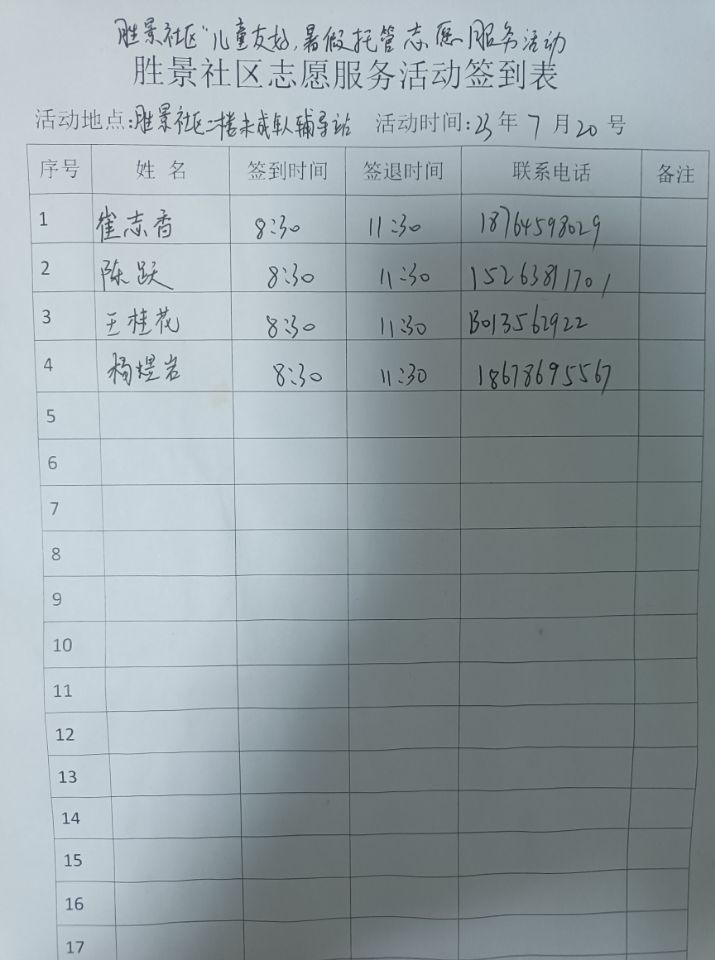 胜景社区"儿童友好,暑假托管志愿服务活动
胜景社区志愿服务活动签到表
活动地点:胜景社区二楼未成年人辅导站 活动时间:23年7月20号
序号 姓名 签到时间 签退时间 联系电话 备注
1 崔志香 8:30 11:30 18764598029
2 陈跃 8:30 11:30 15263811701
3 王桂花 8:30 11:30 13013562922
4 杨煜岩 8:30 11:30 18678695567
5
6
7
8
9
10
11
12
13
14
15
16
17